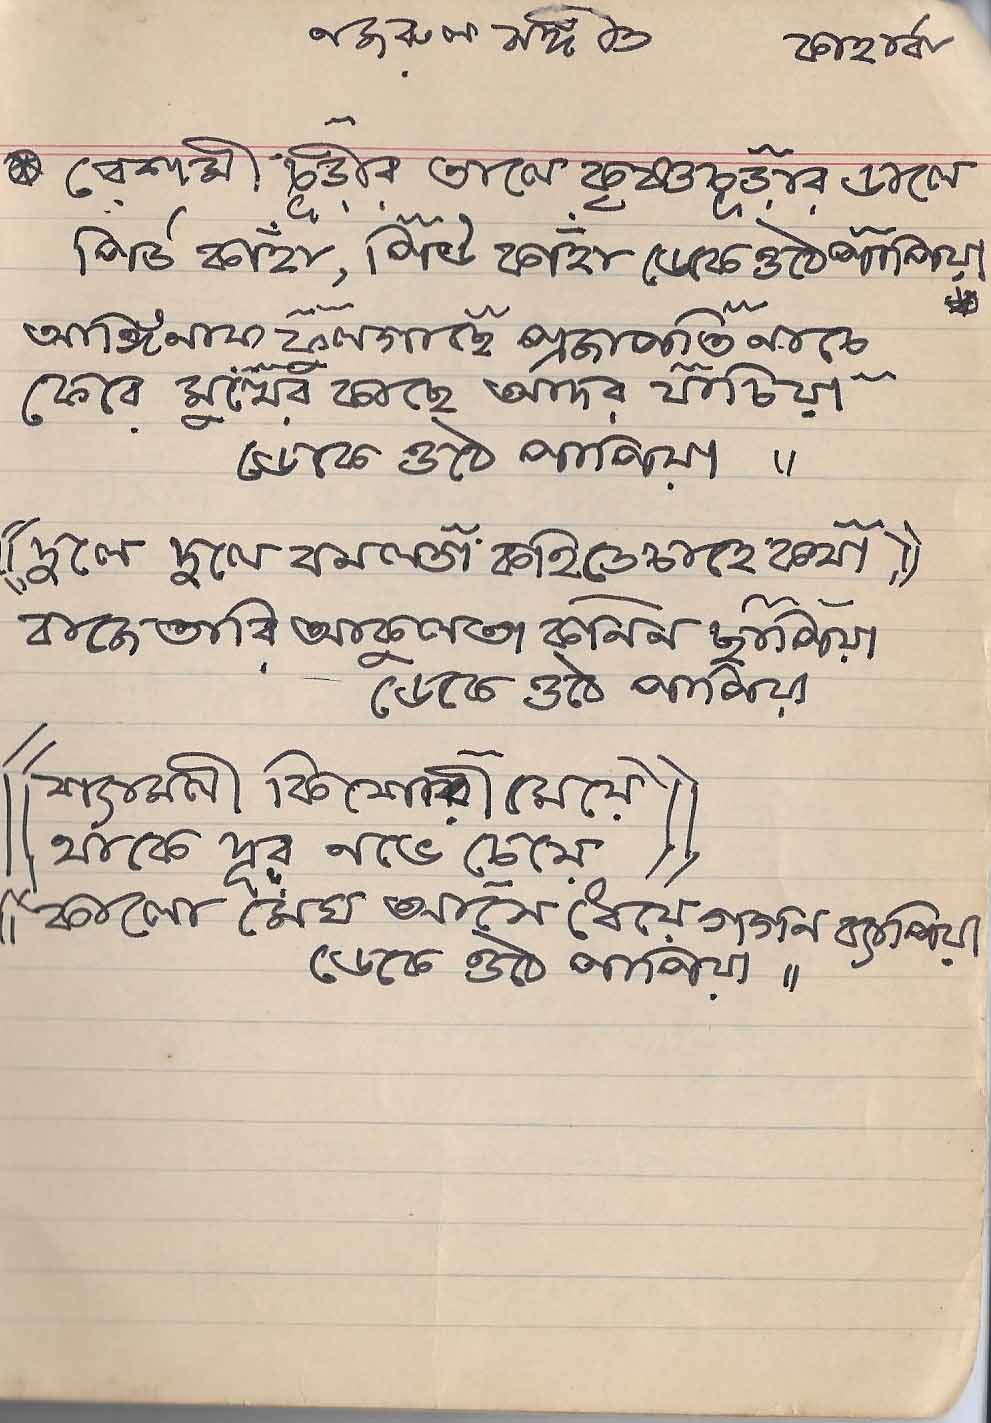 নজরুল সঙ্গীত কাহারবা
রেশমী চুড়ীর তালে কৃষ্ণচূড়ার ডালে
পিউ কাঁহা, পিউ কাঁহা ডেকে ওঠে পাপিয়া
আঙ্গিনায় ফুলগাছে প্রজাপতি নাচে
ফেরে মুখের কাছে আদর যাচিয়া
ডেকে ওঠে পাপিয়া ॥
দুলে দুলে বনলতা কহিতে চাহে কথা
বাজে তারি আকুলতা কানন ছাপিয়া
ডেকে ওঠে পাপিয়া
শ্যামলী কিশোরী মেয়ে
থাকে দূর নভে চেয়ে
কালো মেঘ আসে ধেয়ে গগন ব্যাপিয়া
ডেকে ওঠে পাপিয়া ॥